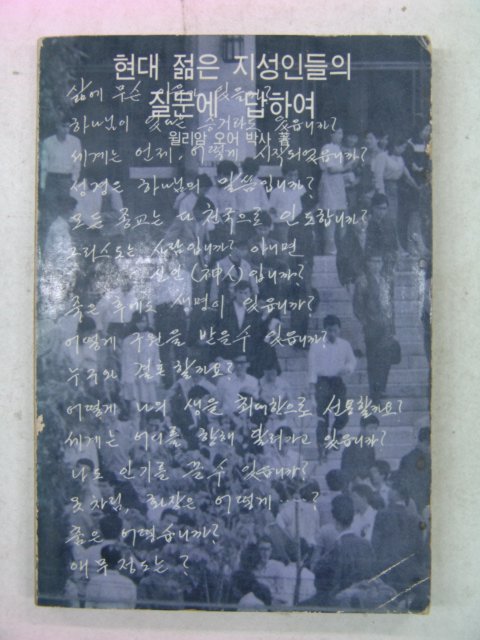 현대 젊은 지성인들의
질문에 답하여
윌리암 오어 박사 著
삶에 무슨 있습니까?
하나님이 있다는 증거라도 있읍니까?
세계는 언제, 어떻게 시작되었읍니까?
성경은 하나님의 말씀입니까?
모든 종교는 다 천국으로 인도합니까?
그리스도는 사람입니까? 아니면
신인(神人)입니까?
죽은 후에도 생명이 있읍니까?
어떻게 구원을 받을수 있읍니까?
누구와 결혼할까요?
어떻게 나의 생을 최대한으로 선용할까요?
세계는 어디를 향해 달려가고 있읍니까?
나도 인기를 끌 수 있읍니까?
옷차림, 화장은 어떻게 ····?
춤은 어떻습니까?
애무정도는?